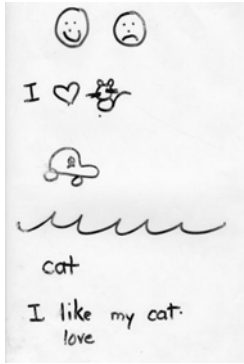 I
cat
I like my cat.
love